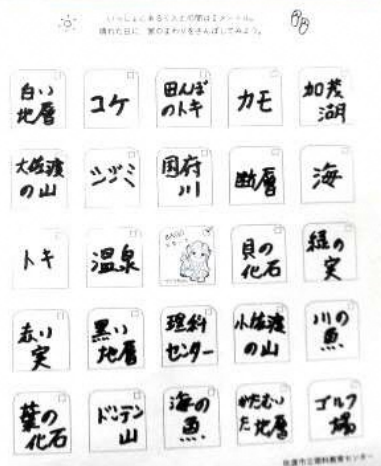 いっしょにあるく人との間は2メートル。
晴れた日に 家のまわりをさんぽしてみよう。
白い
地層
コケ
田んぼ
のトキ
カモ
加茂
湖
大佐渡
の山
シジミ
国府
川
断層
海
トキ
温泉
貝の
化石
緑の
実
赤い
実
黒い
地層
理科
センター
小佐渡
の山
川の
魚
葉の
化石
ドンデン
山
海の
魚
かたむい
た地層
ゴルフ
場
佐渡市立理科教育センター